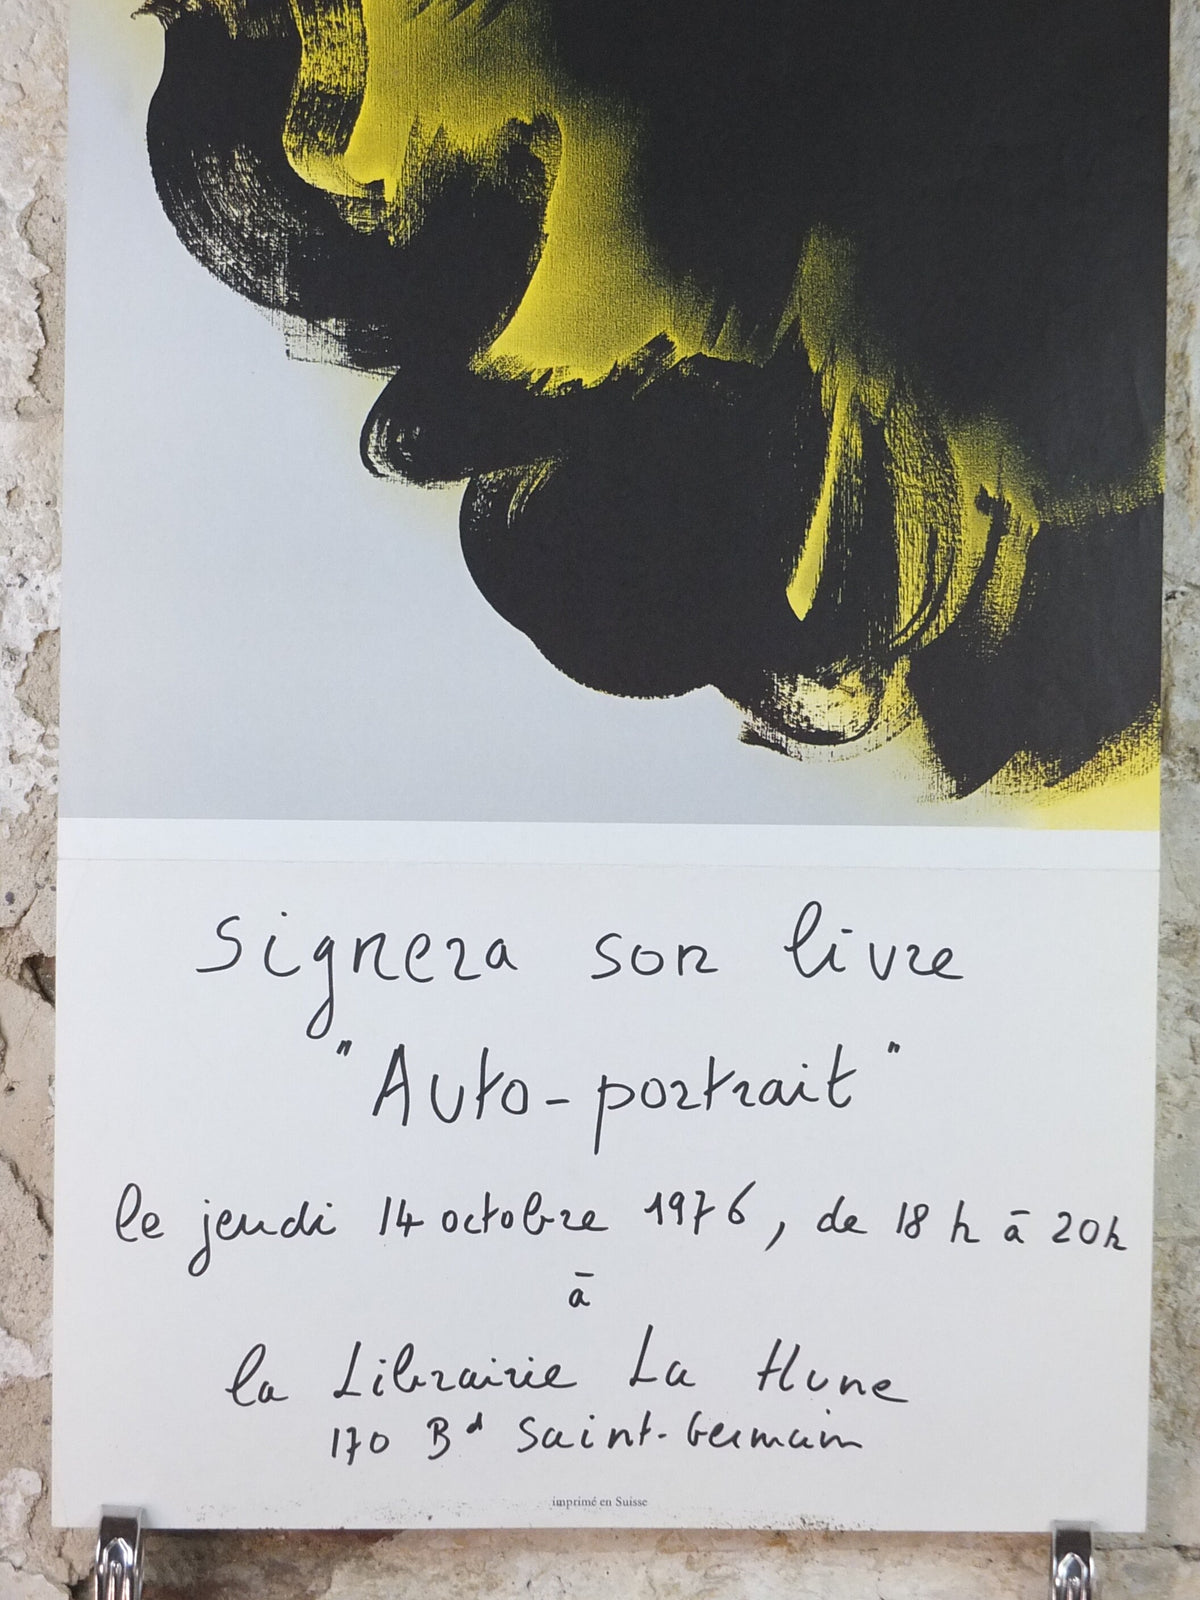 signera son livre
"Auto-portrait"
le jeudi 14 octobre 1976, de 18 h à 20h
à
la Librairie La Hune
170 Bd Saint-Germain
imprimé en Suisse